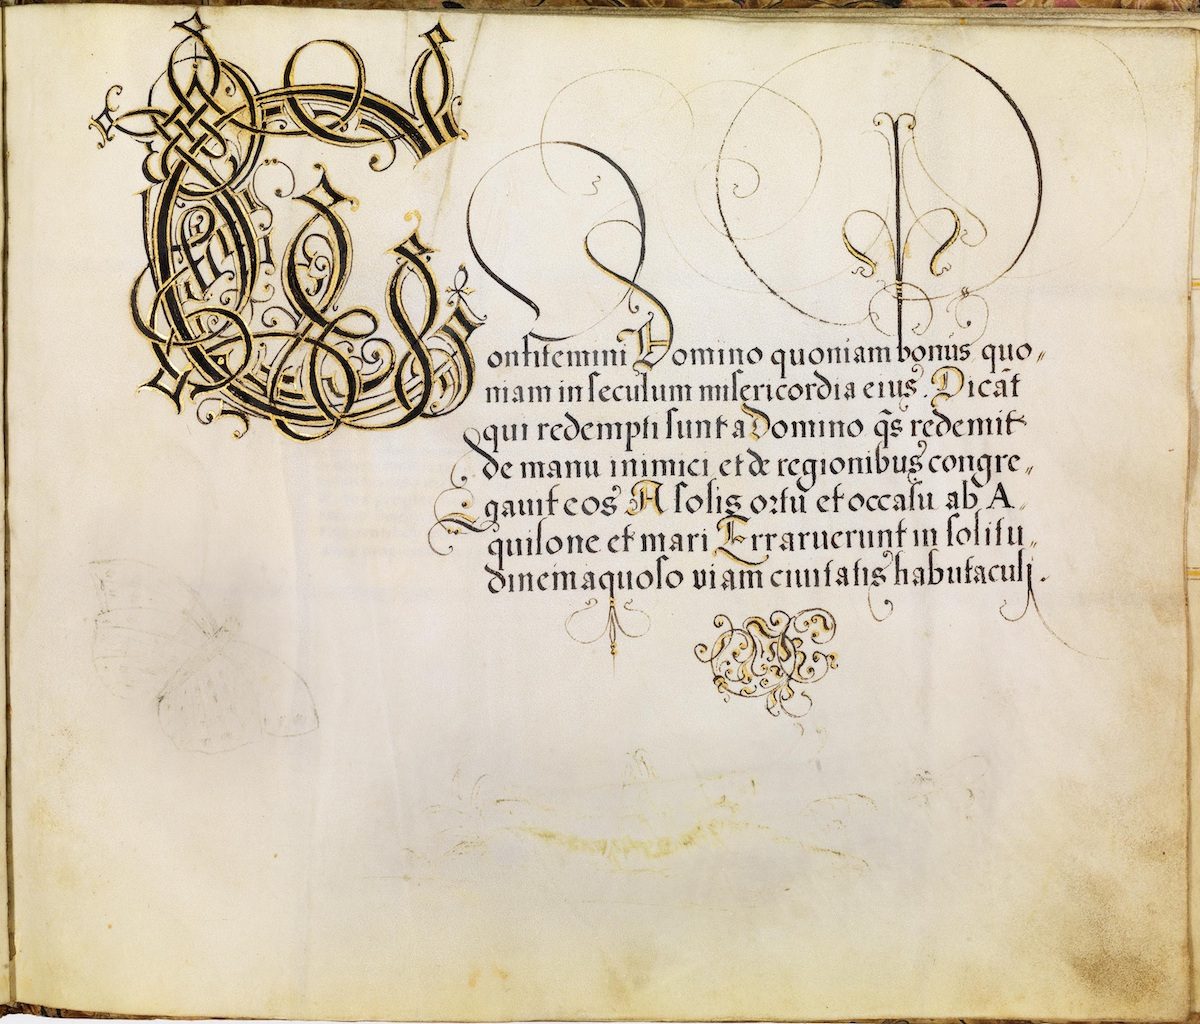 Confitemini Domino quoniam bonus quo„
niam in seculum misericordia eius. Dicāt
qui redempti sunt a Domino q̄s redemit
de manu inimici et de regionibus congre„
gavit eos A solis ortu et occasu ab A„
quilone et mari Erraruerunt in solitu„
dinem aquoso viam civitatis habutaculi.